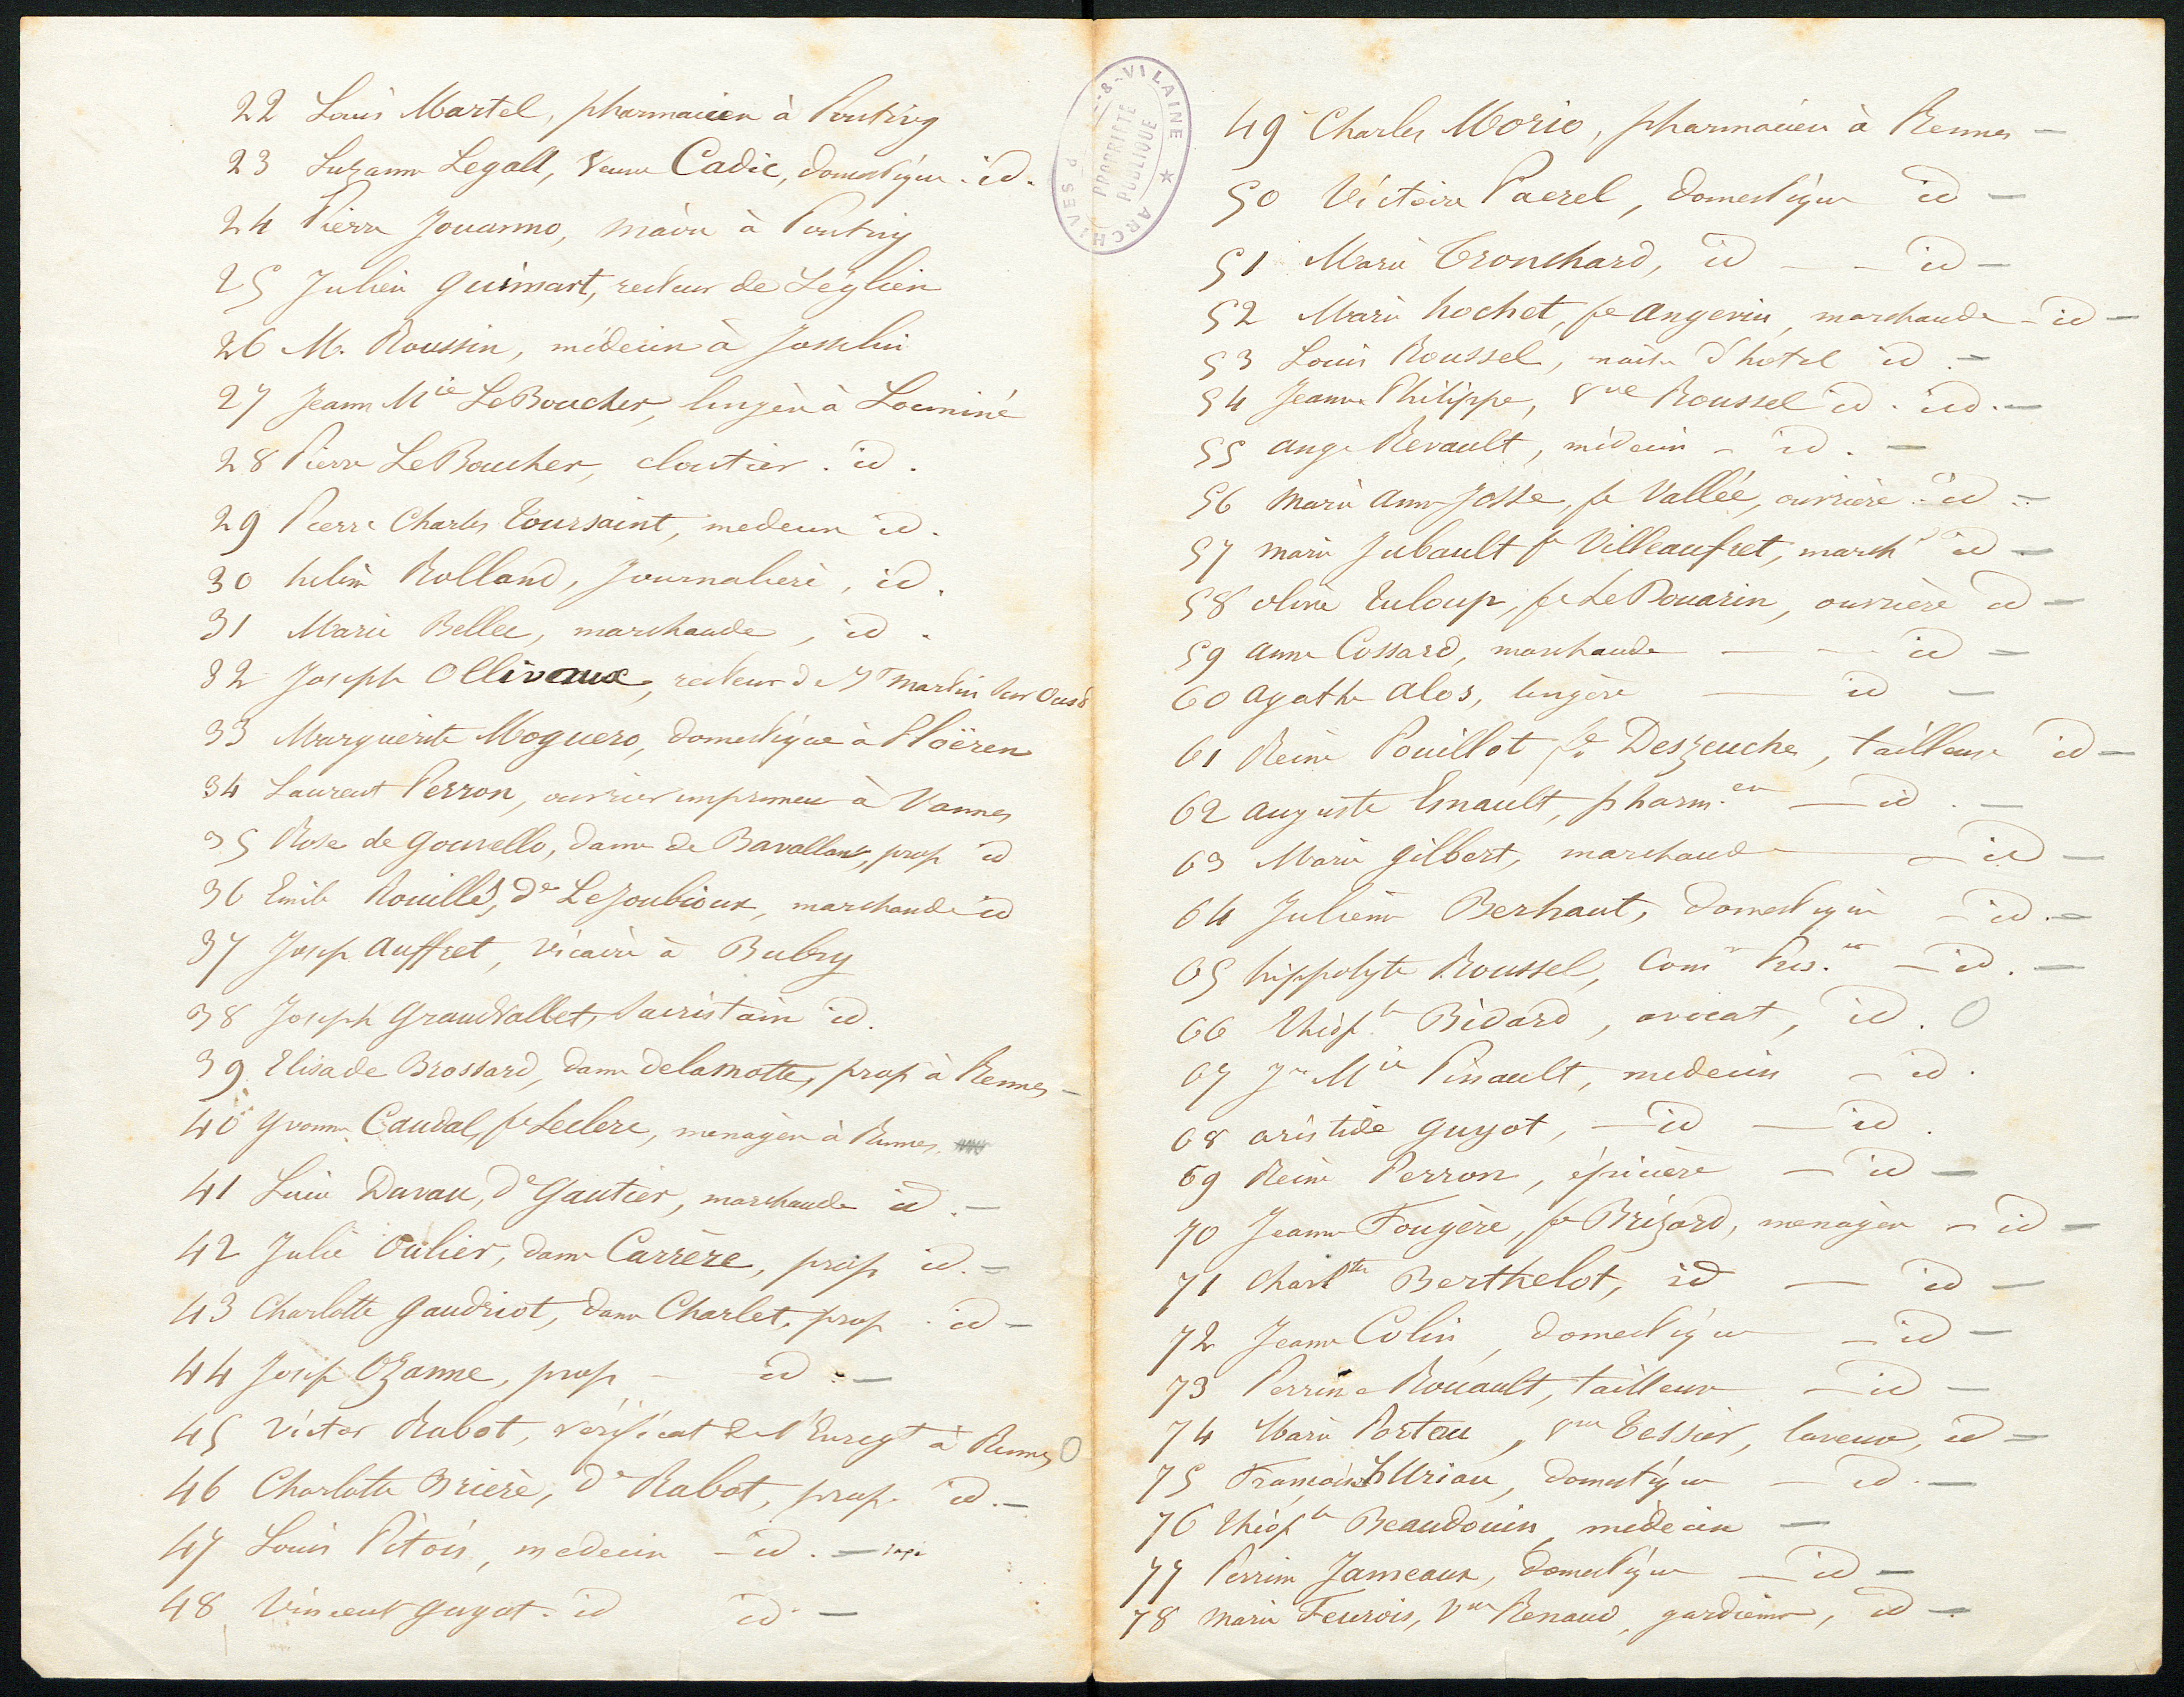 22 Louis Martel, pharmacien à Pontivy
23 Suzanne Legall, veuve Cadic, domestique. id.
24 Pierre Jouanno, maire à Pontivy
25 Julien Guimart, recteur de Séglien
26 M. Roussin, médecin à Josselin
27 Jeanne Mie LeBoucher, lingère à Locminé
28 Pierre LeBoucher, cloutier. id.
29 Pierre Charles Toursaint, medecin id.
30 hélène Rolland, Journalière, id.
31 Marie Bellec, marchande, id.
32 Joseph Olliveaux, recteur de St Martin sur Oust
33 Marguerite Moguero, domestique à Ploëren
34 Laurent Perron, ouvrier imprimeur à Vannes
35 Rose de Gouvello, dame de Bavallan, prop id
36 Emilie Rouillé, de Lejoubioux, marchande id
37 Josep Auffret, vicaire à Bubry
38 Joseph Grandvallet, Sacristain id.
39 Elisa de Brossard, dame delamotte, prop à Rennes -
40 Yvonne Caudal, fe Leclerc, menagère à Rennes.
41 Davau, de Gautier, marchande id. -
42 Julie Oulier, dame Carrère, prop id. -
43 Charlotte Gaudriot, dame Charlet, prop. id -
44 Josep Ozanne, prop - id. -
45 Victor Rabot, vérificat de l'Enregt à Rennes O
46 Charlotte Brière, de Rabot, prop. id. -
47 Louis Pitois, medecin - id. -
48 Vincent Guyot. id id. -
ARCHIVES D'I-&-VILAINE ★
PROPRIÉTÉ
PUBLIQUE
49 Charles Morio, pharmacien à Rennes -
50 Victoire Pacrel, domestique id -
51 Marie Tronchard, id — - id -
52 Marie hochet, fe Angevin, marchande - id -
53 Louis Roussel, maître d'hôtel id. -
54 Jeanne Philippe, vve Roussel id. id. -
55 Ange Revault, médecin - id. -
56 Marie Anne Josse, fe Vallée, ouvrière. id -
57 Marie Jubault fe Villeaufret, marchde id -
58 olive Tuloup, fe LeDouarin, ouvrière id -
59 Anne Cossard, marchande — — id -
60 Agathe Alos, lingère — id -
61 Reine Pouillot fe Deszeuches, tailleuse id -
62 Auguste Esnault, pharm.en — id. -
63 Marie Gilbert, marchande — id -
64 Julienne Berhaut, domestique - id. -
65 hippolyte Roussel, Comre Pris.er - id. -
66 Théople Bidard, avocat, id. O
67 Jn Mie Pinault, medecin - id.
68 aristide Guyot, — id — id.
69 Reine Perron, épicière - id -
70 Jeanne Fougère, fe Brizard, menagère - id -
71 Charltte Berthelot, id — id -
72 Jeanne Colin, domestique - id -
73 Perrine Rouault, tailleuse - id -
74 Marie Porteu, vve Tessier, laveuse, id -
75 Françoise Huriau, domestique - id. -
76 Théople Beaudouin, médecin -
77 Perrine Jameaux, domestique - id -
78 Marie Feurois, Vve Renaud, gardienne, id -